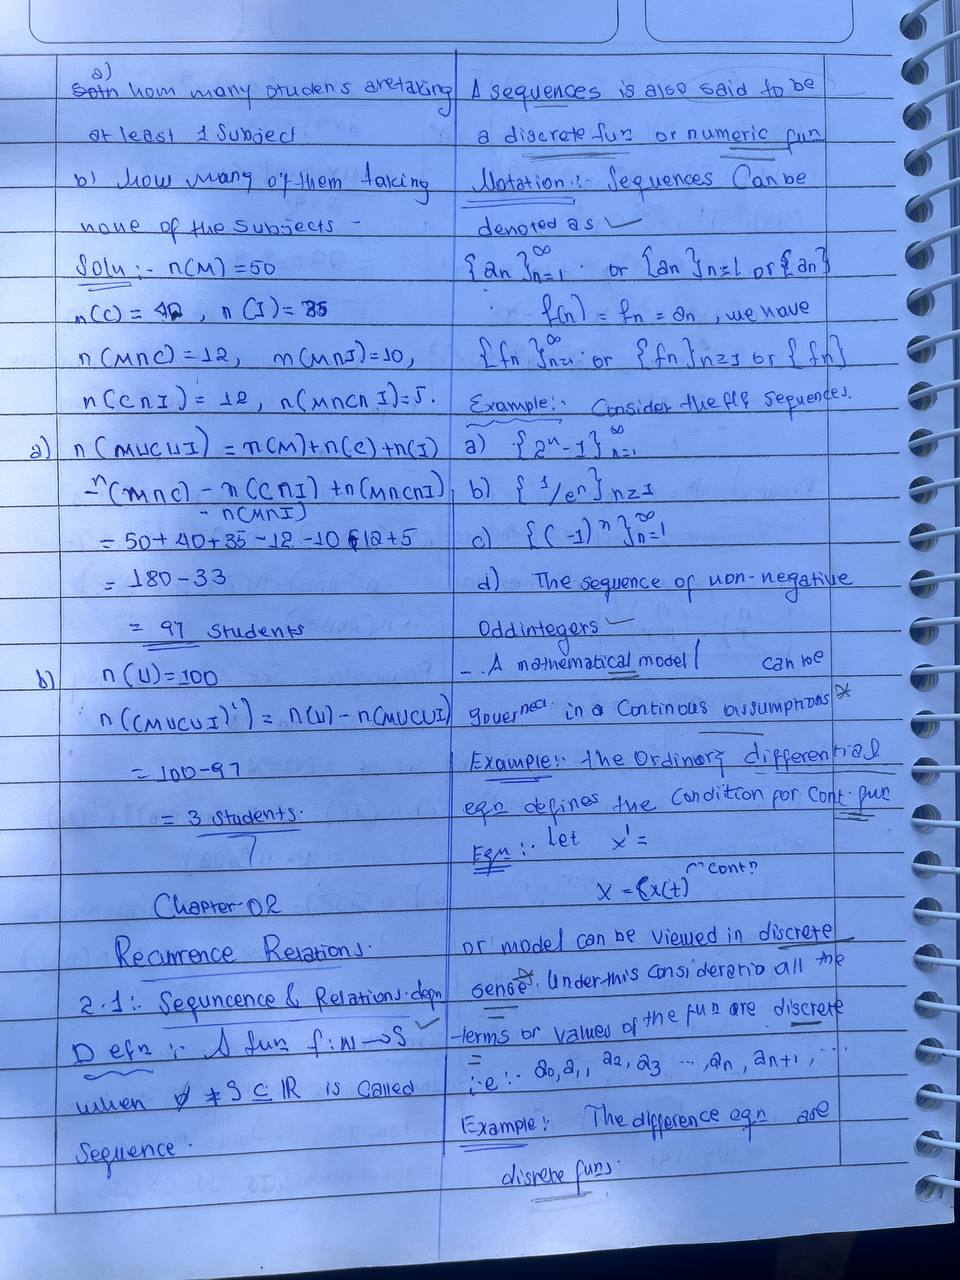 a)
how many students are taking
at least 1 Subject
b) how many of them taking
none of the subjects -
Solu :- n(M) = 50
n(C) = 40, n(I) = 35
n(M∩C) = 12, n(M∩I) = 10,
n(C∩I) = 12, n(M∩C∩I) = 5.
a) n(M∪C∪I) = n(M) + n(C) + n(I)
- n(M∩C) - n(C∩I) + n(M∩C∩I)
- n(M∩I)
= 50 + 40 + 35 - 12 - 10 - 12 + 5
= 130 - 33
= 97 students
b) n(U) = 100
n((M∪C∪I)') = n(U) - n(M∪C∪I)
= 100 - 97
= 3 students.
Chapter 02
Recurrence Relations.
2.1:- Seguncence & Relations. defn
Defn :- A fun f: N → S
when ∅ ≠ S ⊆ IR is called
sequence.
A sequences is also said to be
a discrete fun or numeric fun
Notation :- Sequences Can be
denoted as ✓
{an}∞n=1 or {an}n=1 or {an}
f(n) = fn = an, we have
{fn}∞n=1 or {fn}n≥1 or {fn}
Example:- Consider the ff sequences.
a) {2ⁿ - 1}∞n=1
b) {1/eⁿ}n≥1
c) {(-1)ⁿ}∞n=1
d) The sequence of non-negative
Odd integers
- A mathematical model can be
governed in a Continous assumptions *
Example:- the Ordinory differential
eqn defines the condition for cont. fun
Eqn :- let x' =
cont?
X = {x(t)
or model can be viewed in discrete
sense *. Under this consideratio all the
terms or values of the fun are discrete
i.e:- a0, a1, a2, a3 ..., an, an+1, ...
Example: The difference eqn are
disrete funs.